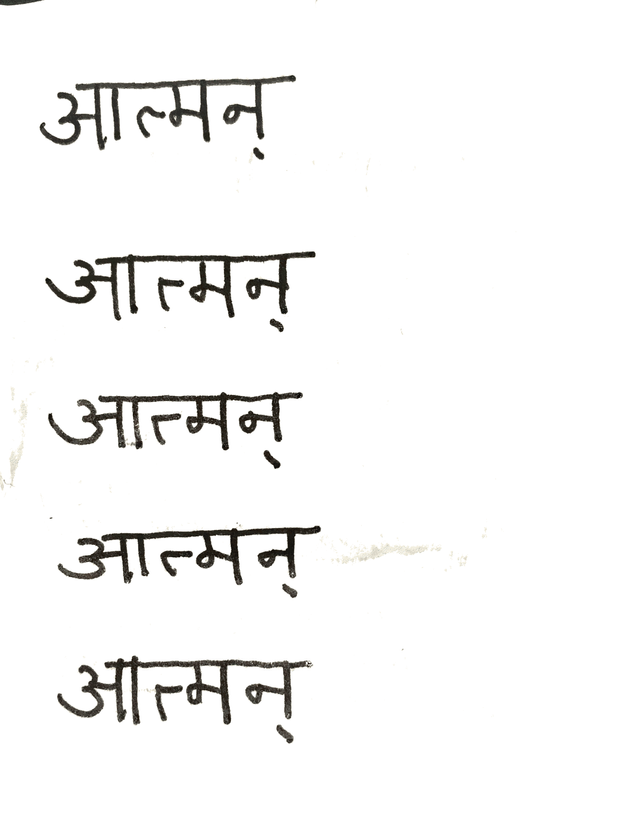 आत्मन्
आत्मन्
आत्मन्
आत्मन्
आत्मन्